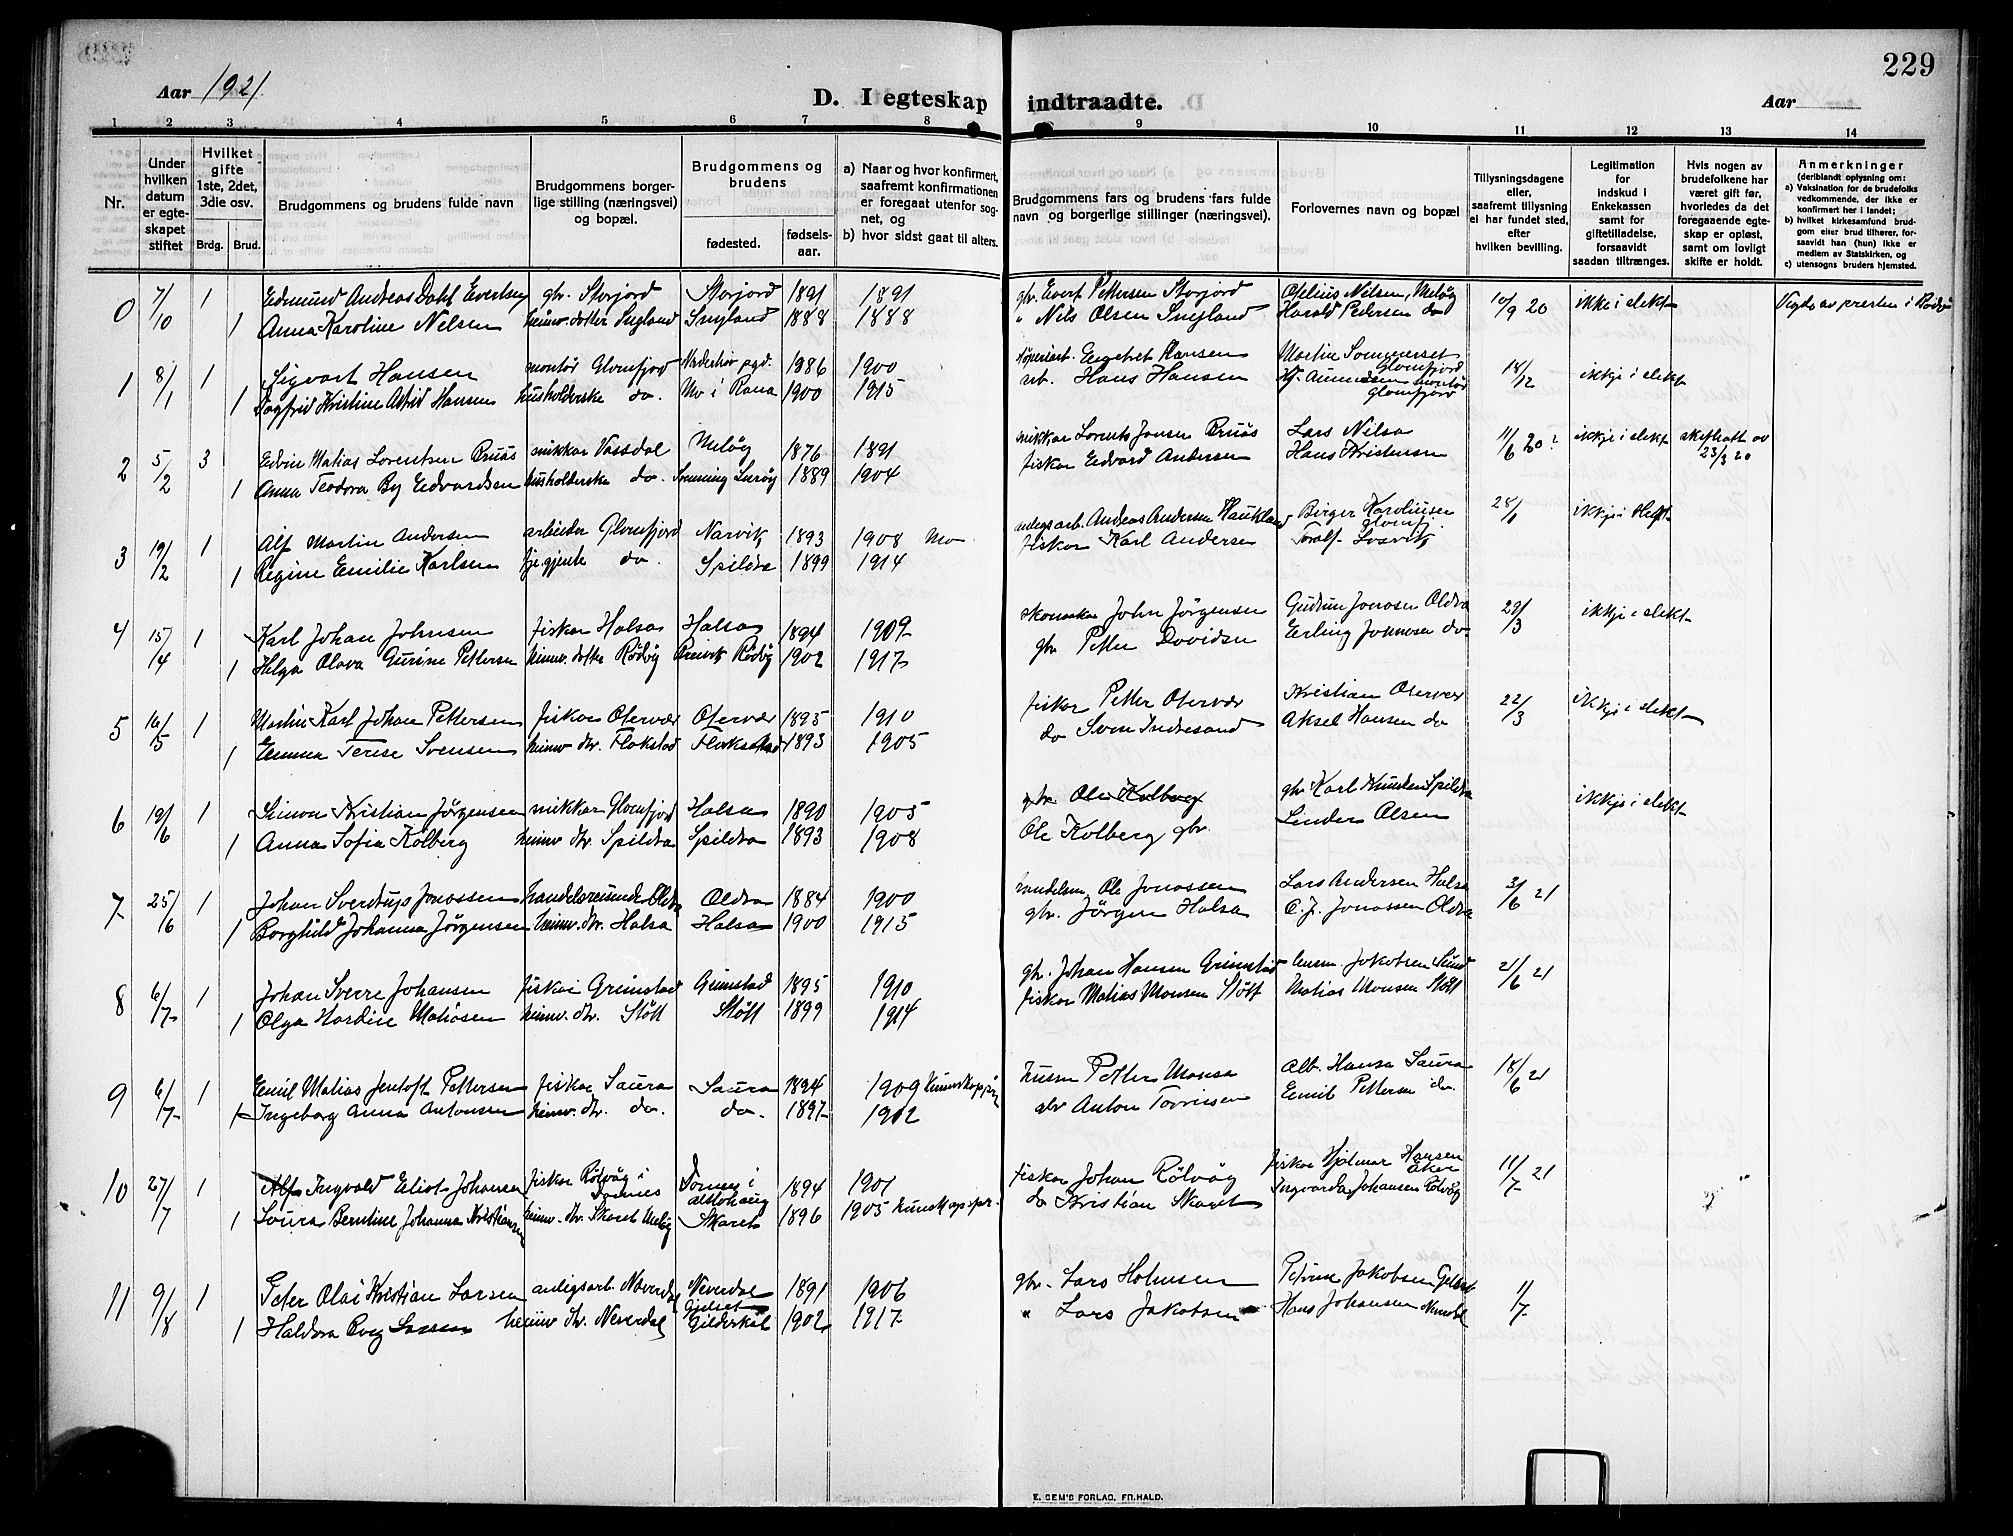 229
Aar 1921
D. I egteskap indtraadte.
Aar
1 2 3 4 5 6 7 8 9 10 11 12 13 14
Nr.
Under hvilken datum er egteskapet stiftet
Hvilket gifte 1ste, 2det, 3die osv.
Brdg. Brud.
Brudgommens og brudens fulde navn
Brudgommens borgerlige stilling (næringsvei) og bopæl.
Brudgommens og brudens
fødested. fødselsaar.
a) Naar og hvor konfirmert, saafremt konfirmationen er foregaat utenfor sognet, og
b) hvor sidst gaat til alters.
Brudgommens fars og brudens fars fulde navn og borgerlige stillinger (næringsvei).
Forlovernes navn og bopæl
Tillysningsdagene eller, saafremt tillysning ei har fundet sted, efter hvilken bevilling.
Legitimation for indskud i Enkekassen samt for giftetilladelse, forsaavidt saadan tiltrænges.
Hvis nogen av brudefolkene har været gift før, hvorledes da det foregaaende egteskap er opløst, samt om lovligt skifte er holdt.
Anmerkninger (deriblandt oplysning om:
a) Vaksination for de brudefolks vedkommende, der ikke er konfirmert her i landet;
b) hvilket kirkesamfund brudgom eller brud tilhører, forsaavidt han (hun) ikke er medlem av Statskirken, og
c) utensogns bruders hjemsted.
0 7/10 1 Edmund Andreas Dahl Evertsen gbr. Storjord Storjord 1891 1891 gbr. Evert Pettersen Storjord Ofelius Nilsen, Meløy 10/9 20 ikke i slekt Vigde av presten i Rødøy
1 Anna Karoline Nelsen heimv. dotter 1888 1888 " Nils Olsen Harald Pedersen do
1 8/1 1 Sigvart Hansen montør Glomfjord 1886 1900 Engebret Hansen Martin Sommerset Glomfjord 18/12 ikkje i slekt
1 Dagfrid Kristine Astrid Hansen husholderske do. Mo i Rana 1900 1915 arb. Hans Hansen montør Glomfjord
2 5/2 3 Edvin Matias Lorentsen Bruås snikkar Vassdal Meløy 1876 1891 snikkar Lorents Jonsen Bruås Lars Nilsa 11/6 20 ikkje i slekt skifthatt av 23/3 20
1 Anna Teodora By Edvardsen husholderske do. 1889 1904 fiskar Edvard Andersen Hans Kristensen
3 19/2 1 Alf Martin Andersen arbeider Glomfjord Narvik 1893 1908 Mo anlegsarb. Andreas Andersen Haukland Birger Karoliusen Glomfj. 28/1 ikkje i slekt
1 Regine Emilie Karlsen tje.gjente do. Spildra 1899 1914 fiskar Karl Andersen Toralf
4 15/4 1 Karl Johan Johnsen fiskar Halsa Halsa 1894 1909 skomaker John Jørgensen Gudrun Jonasen Oldra 29/3 ikkje i slekt
1 Helga Olava Gurine Pettersen heimv. dotter Rødøy Rødøy 1902 1917 gbr Petter Davidsen Erling Johnsen do
5 16/5 1 Martin Karl Johan Pettersen fiskar Otervær Otervær 1895 1910 fiskar Petter Otervær Kristian Otervær 22/3 ikkje i slekt
1 Emma Terese Svensen heimv. dtr. Flokstad Flokstad 1893 1905 do Sven Indresand Aksel Hansen do
6 19/6 1 Simon Kristian Jørgensen snikkar Glomfjord Halsa 1890 1905 gbr. Ole Kolberg gbr Karl Knutsen Spildra ikkje i slekt
1 Anna Sofia Kolberg heimv dtr. Spildra Spildra 1893 1908 Ole Kolberg gbr. Linder Olsen
7 25/6 1 Johan Sverdrup Jonassen handelsreisende Oldra Oldra 1884 1900 handelsm. Ole Jonassen Lars Andersen Halsa 3/6 21
1 Borghild Johanna Jørgensen heimv. dtr. Halsa Halsa 1900 1915 gbr. Jørgen Halsa O. J. Jonassen Oldra
8 6/7 1 Johan Sverre Johansen fiskar Grimstad Grimstad 1895 1910 gbr. Johan Hansen Grimstad Jakobsen Sund 21/6 21
1 Olga Hardine Matiasen heimv. dtr. Støtt Støtt 1899 1914 fiskar Matias Monsen Støtt Matias Monsen Støtt
9 6/7 1 Emil Matias Jentoft Pettersen fiskar Saura Saura 1894 1909 kunnskappr. husm Petter Monsa Alb. Hansa Saura 18/6 21
1 Ingeborg Anna Antonsen heimv. dtr. do. do. 1897 1912 Anton Emil Pettersen do.
10 27/7 1 Alf Ingvald Eliot Johansen fiskar Rølvåg i Dønnes Dønnes i Alstohaug 1894 1901 fiskar Johan Rølvåg fiskar Hjalmar Hansen Åker 11/7 21
1 Laura Berntine Johanna Kristiansen heimv. dtr. Skaret Meløy Skaret 1896 1905 kunnskapspr. do Kristian Skaret Ingvarda Johansen Rølvåg
11 9/8 1 Peter Olai Kristian Larsen anlegsarb. Neverdal Neverdal 1891 1906 gbr. Lars Holmsen Petrine Jakobsen 11/7
1 Haldora Larsen heimv dtr. Neverdal Gildeskål 1902 1917 " Lars Jakobsen Hans Johansen Neverdal
E. SEM'S FORLAG, FR.HALD.